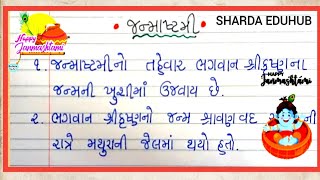 SHARDA EDUHUB
Happy Janmashtami
જન્માષ્ટમી
૧. જન્માષ્ટમીનો તહેવાર ભગવાન શ્રીકૃષ્ણના
જન્મની ખુશીમાં ઉજવાય છે.
Janmashtami
૨. ભગવાન શ્રીકૃષ્ણનો જન્મ શ્રાવણ વદ ની
રાત્રે મથુરાની જેલમાં થયો હતો.